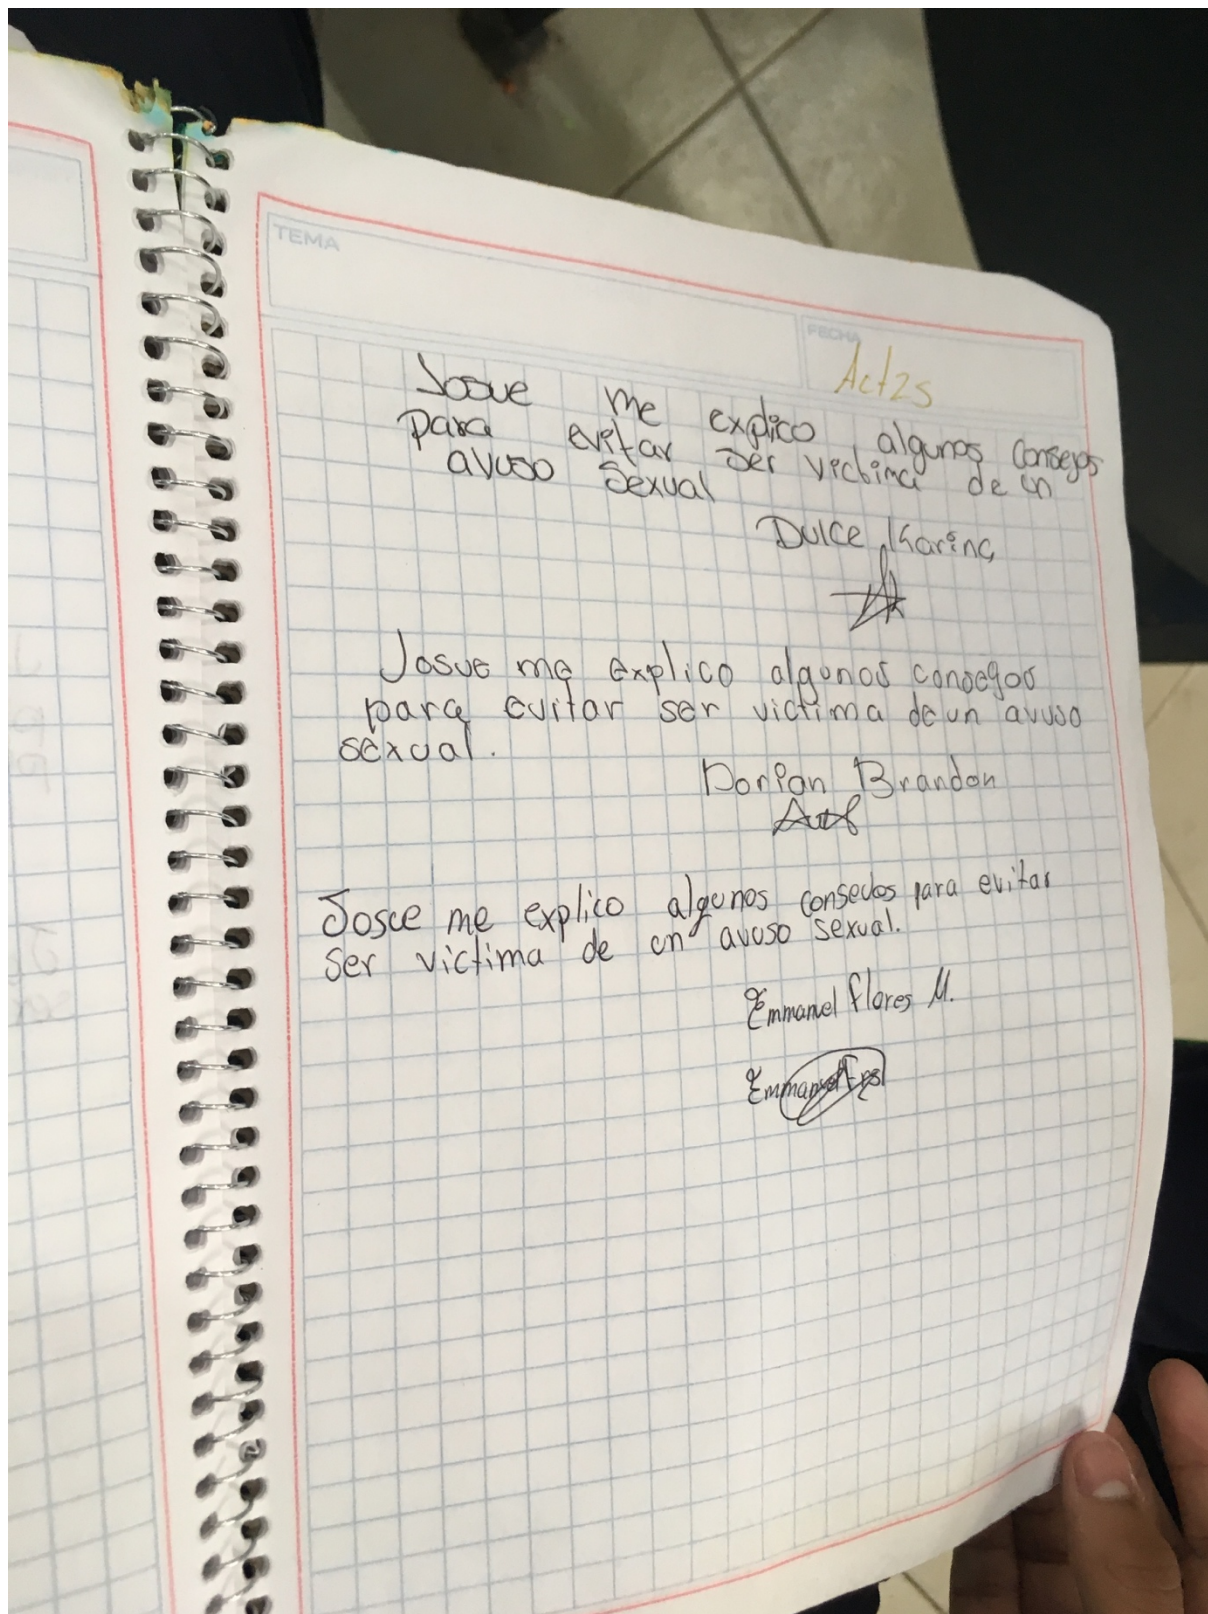 TEMA
FECHA
Act 25
Josue me explico algunos consejos
para evitar ser victima de un
avuso sexual
Dulce Karina
Josue me explico algunos consegos
para evitar ser victima de un avuso
sexual.
Dorian Brandon
Josue me explico algunos consejos para evitar
ser victima de un avuso sexual.
Emmanuel flores M.